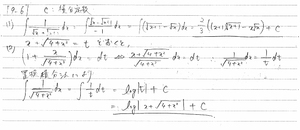 [9.6] C:積分定数
(1) ∫ 1/(√x+√(x+1)) dx = ∫ (√x-√(x+1))/(-1) dx = ∫(√(x+1) - √x)dx = 2/3 {(x+1)√(x+1) - x√x} + C
x+√(4+x²) = t とおくと、
(1 + x/√(4+x²)) dx = dt ⇔ (x+√(4+x²))/√(4+x²) dx = dt ∴ 1/√(4+x²) dx = 1/t dt
置換積分法により
∫ 1/√(4+x²) dx = ∫ 1/t dt = log|t| + C
= log|x+√(4+x²)| + C